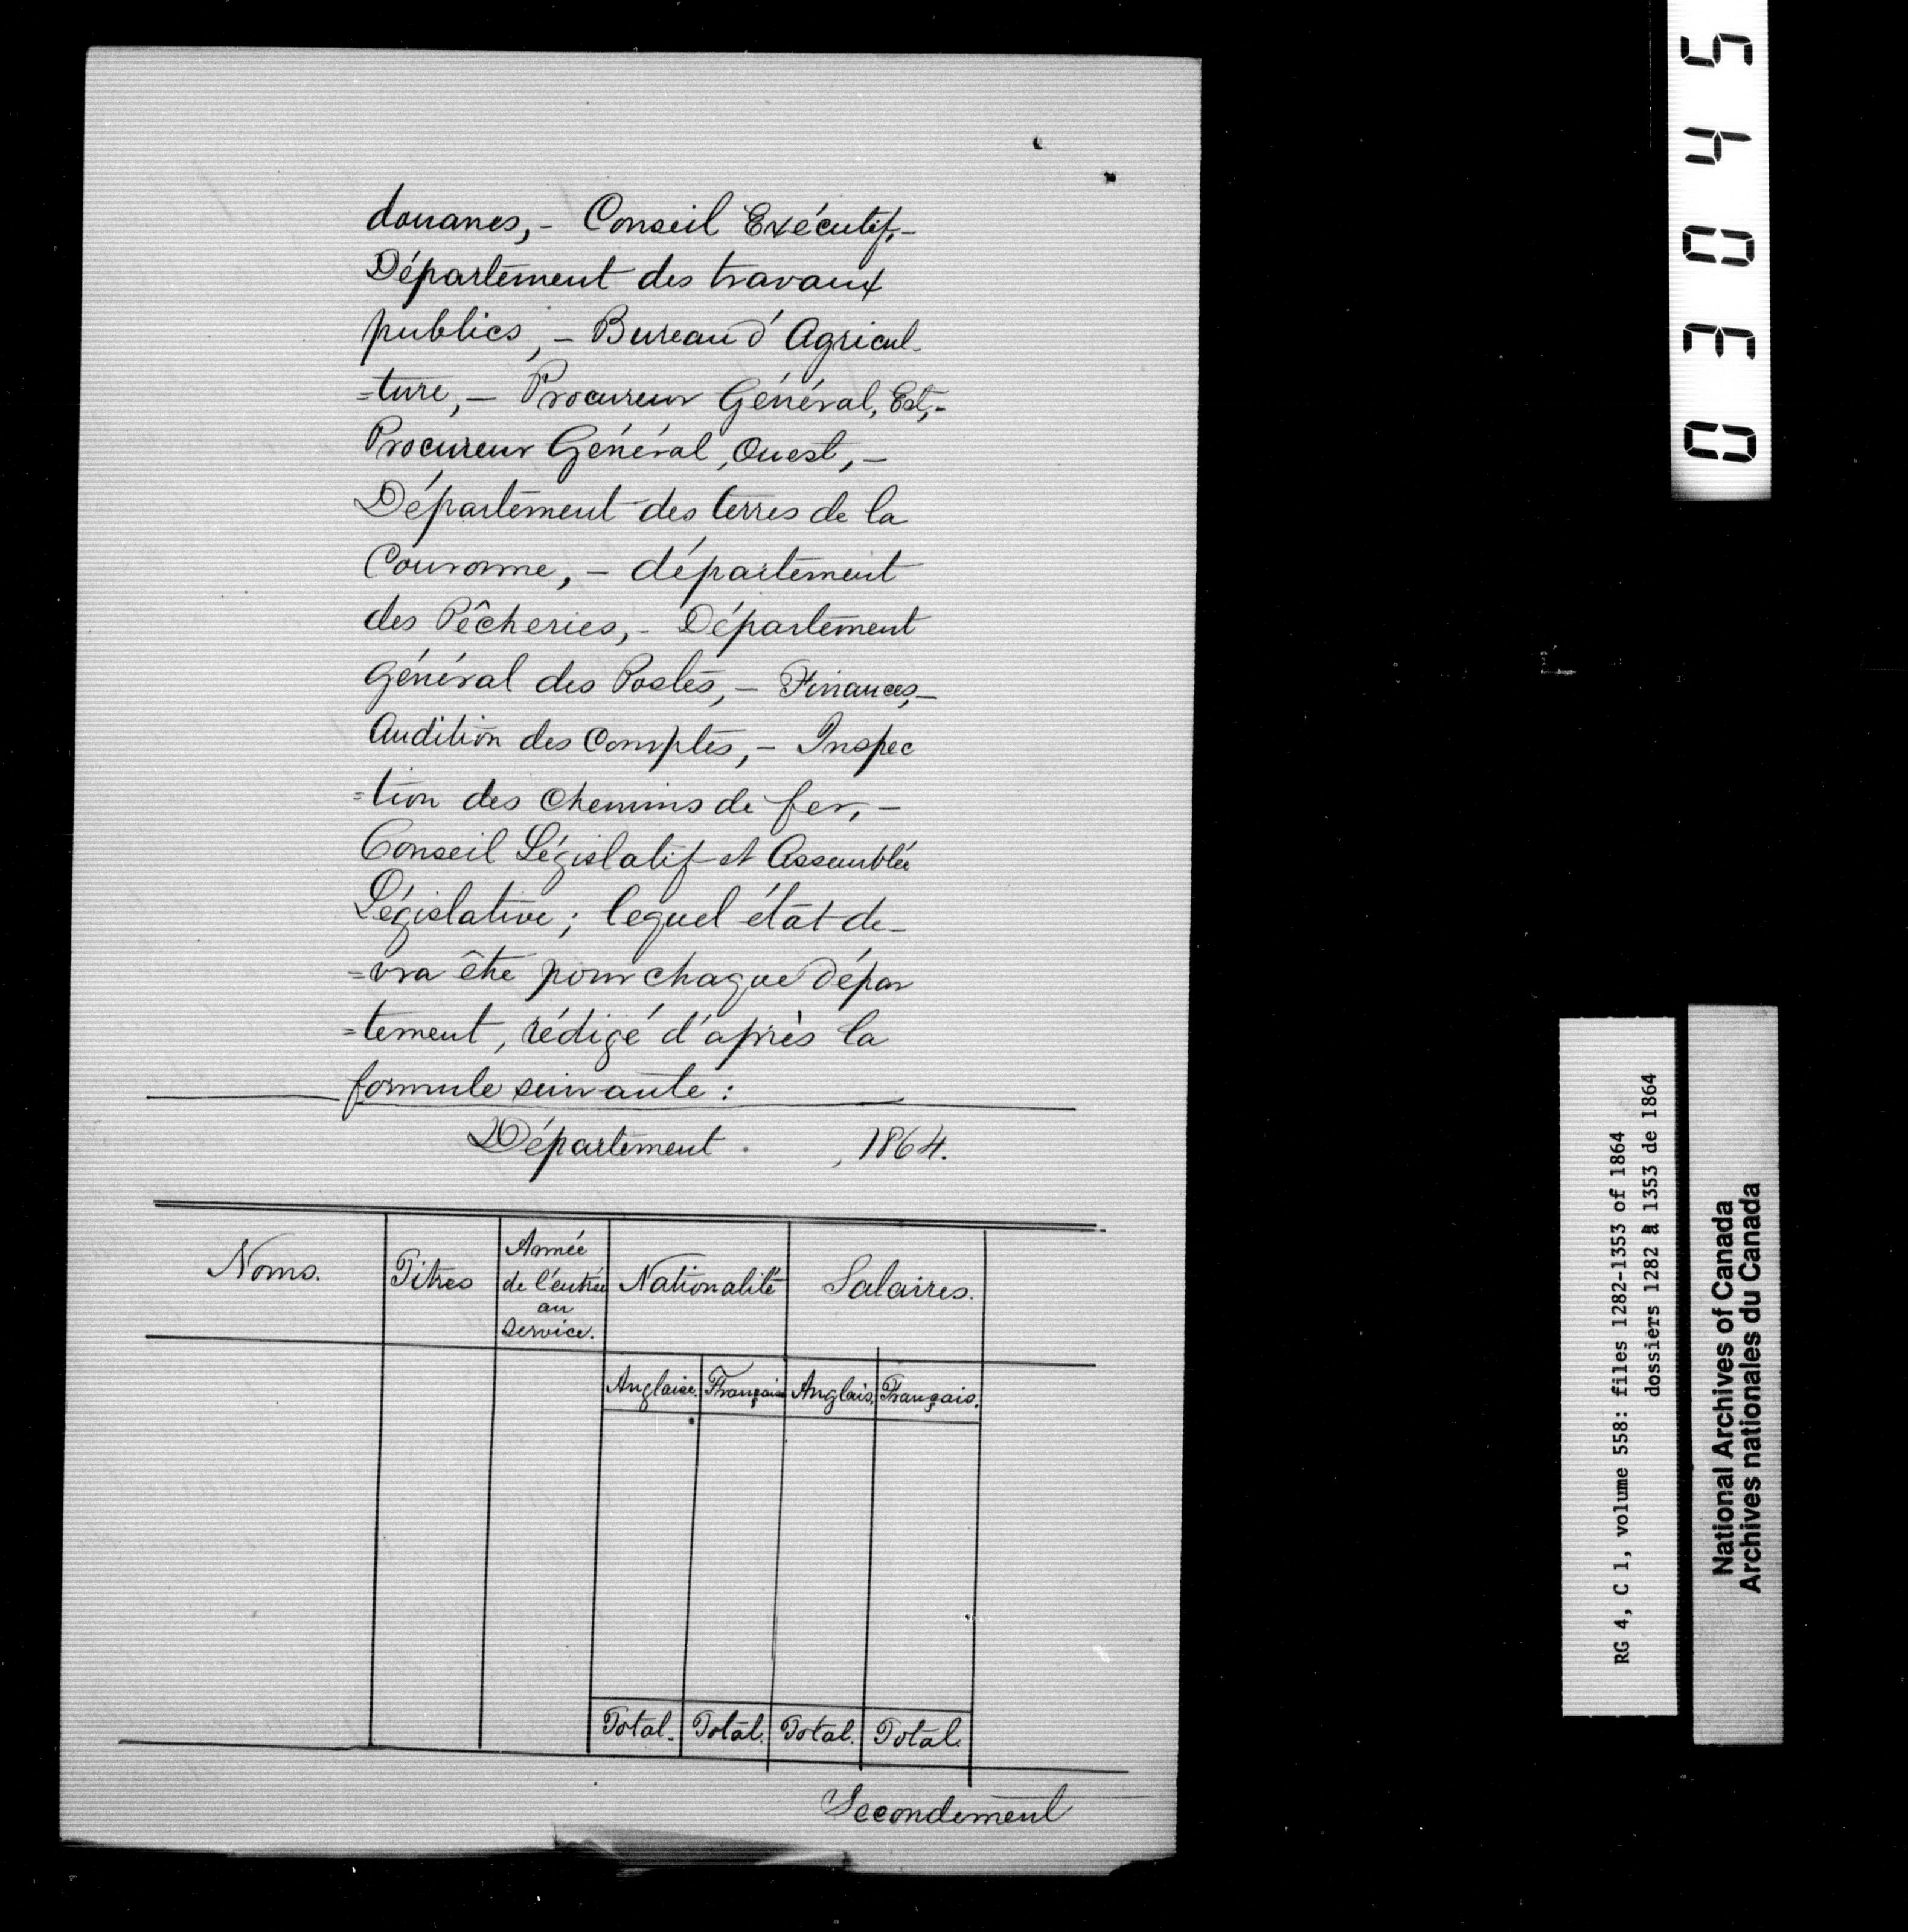 douanes,- Conseil Exécutif,-
Département des travaux
publics,- Bureau d'Agricul-
=ture,- Procureur Général, Est,-
Procureur Général, Ouest,-
Département des terres de la
Couronne,- département
des Pêcheries,- Département
Général des Postes,- Finances,-
Audition des Comptes,- Inspec
=tion des Chemins de fer,-
Conseil Législatif et Assemblée
Législative; lequel état de-
=vra être pour chaque dépar
=tement, rédigé d'après la
formule suivante:
Département , 1864.
Noms. Titres Année de l'entrée au service. Nationalité Salaires.
Anglaise. Française Anglais. Français.
Total. Total. Total. Total.
Secondement
03045
RG 4, C 1, volume 558: files 1282-1353 of 1864
dossiers 1282 à 1353 de 1864
National Archives of Canada
Archives nationales du Canada